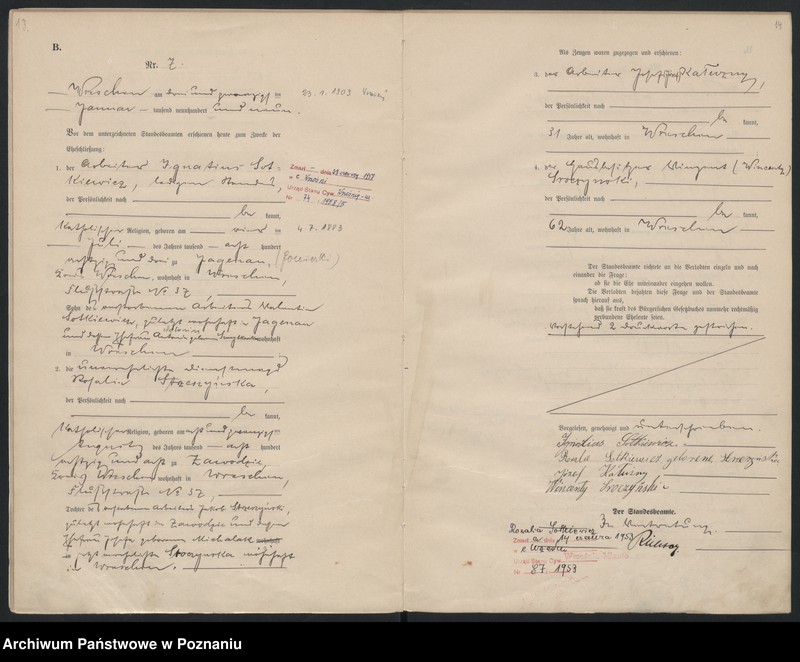 13
B.
Nr. 7.
Wreschen am drei und zwanzigsten
23. 1. 1909
Januar tausend neunhundert und neun.
Vor dem unterzeichneten Standesbeamten erschienen heute zum Zwecke der
Eheschließung:
1. der Arbeiter Ignatius Sot-
kiewicz, ledigen Standes,
der Persönlichkeit nach
be kannt,
katholischer Religion, geboren am vier ten
4. 7. 1883
Juli des Jahres tausend acht hundert
achtzig und drei zu Jagenau,
Kreis Wreschen, wohnhaft in Wreschen,
No 37,
Sohn des verstorbenen Arbeiters Valentin
Sotkiewicz, zuletzt wohnhaft in Jagenau
und dessen Ehefrau geborenen wohnhaft
in Wreschen
2. die unverehelichte Dienstmagd
Rosalie Sroczyńska,
der Persönlichkeit nach
be kannt,
katholischer Religion, geboren am acht und zwanzigsten
August des Jahres tausend acht hundert
achtzig und acht zu Zawodzie,
Kreis Wreschen wohnhaft in Wreschen,
No 37,
Tochter des verstorbenen Arbeiters Jakob Sroczyński,
zuletzt wohnhaft in Zawodzie und dessen
Ehefrau geborenen Michalak
Sroczynska wohnhaft
in Wreschen.
Urząd Stanu Cyw.
Nr 74
14
Als Zeugen waren zugezogen und erschienen:
3. der Arbeiter Josef Kałużny,
der Persönlichkeit nach
be kannt,
31 Jahre alt, wohnhaft in Wreschen
4. der Winzent (Wincenty)
Sroczyński,
der Persönlichkeit nach
be kannt,
62 Jahre alt, wohnhaft in Wreschen
Der Standesbeamte richtete an die Verlobten einzeln und nach
einander die Frage:
ob sie die Ehe miteinander eingehen wollen.
Die Verlobten bejahten diese Frage und der Standesbeamte
sprach hierauf aus,
daß sie kraft des Bürgerlichen Gesetzbuchs nunmehr rechtmäßig
verbundene Eheleute seien.
Vorstehend 2 Druckworte gestrichen.
Vorgelesen, genehmigt und unterschrieben.
Ignatius Sotkiewicz
Rosalie Sotkiewicz geborene Sroczynski
Józef Kałużny
Wincenty Sroczyński
Der Standesbeamte.
In Vertretung.
Rozalia Sotkiewicz
Zmarł dnia 14 marca 1953
Urząd Stanu Cyw.
Nr 87/1953
Archiwum Państwowe w Poznaniu